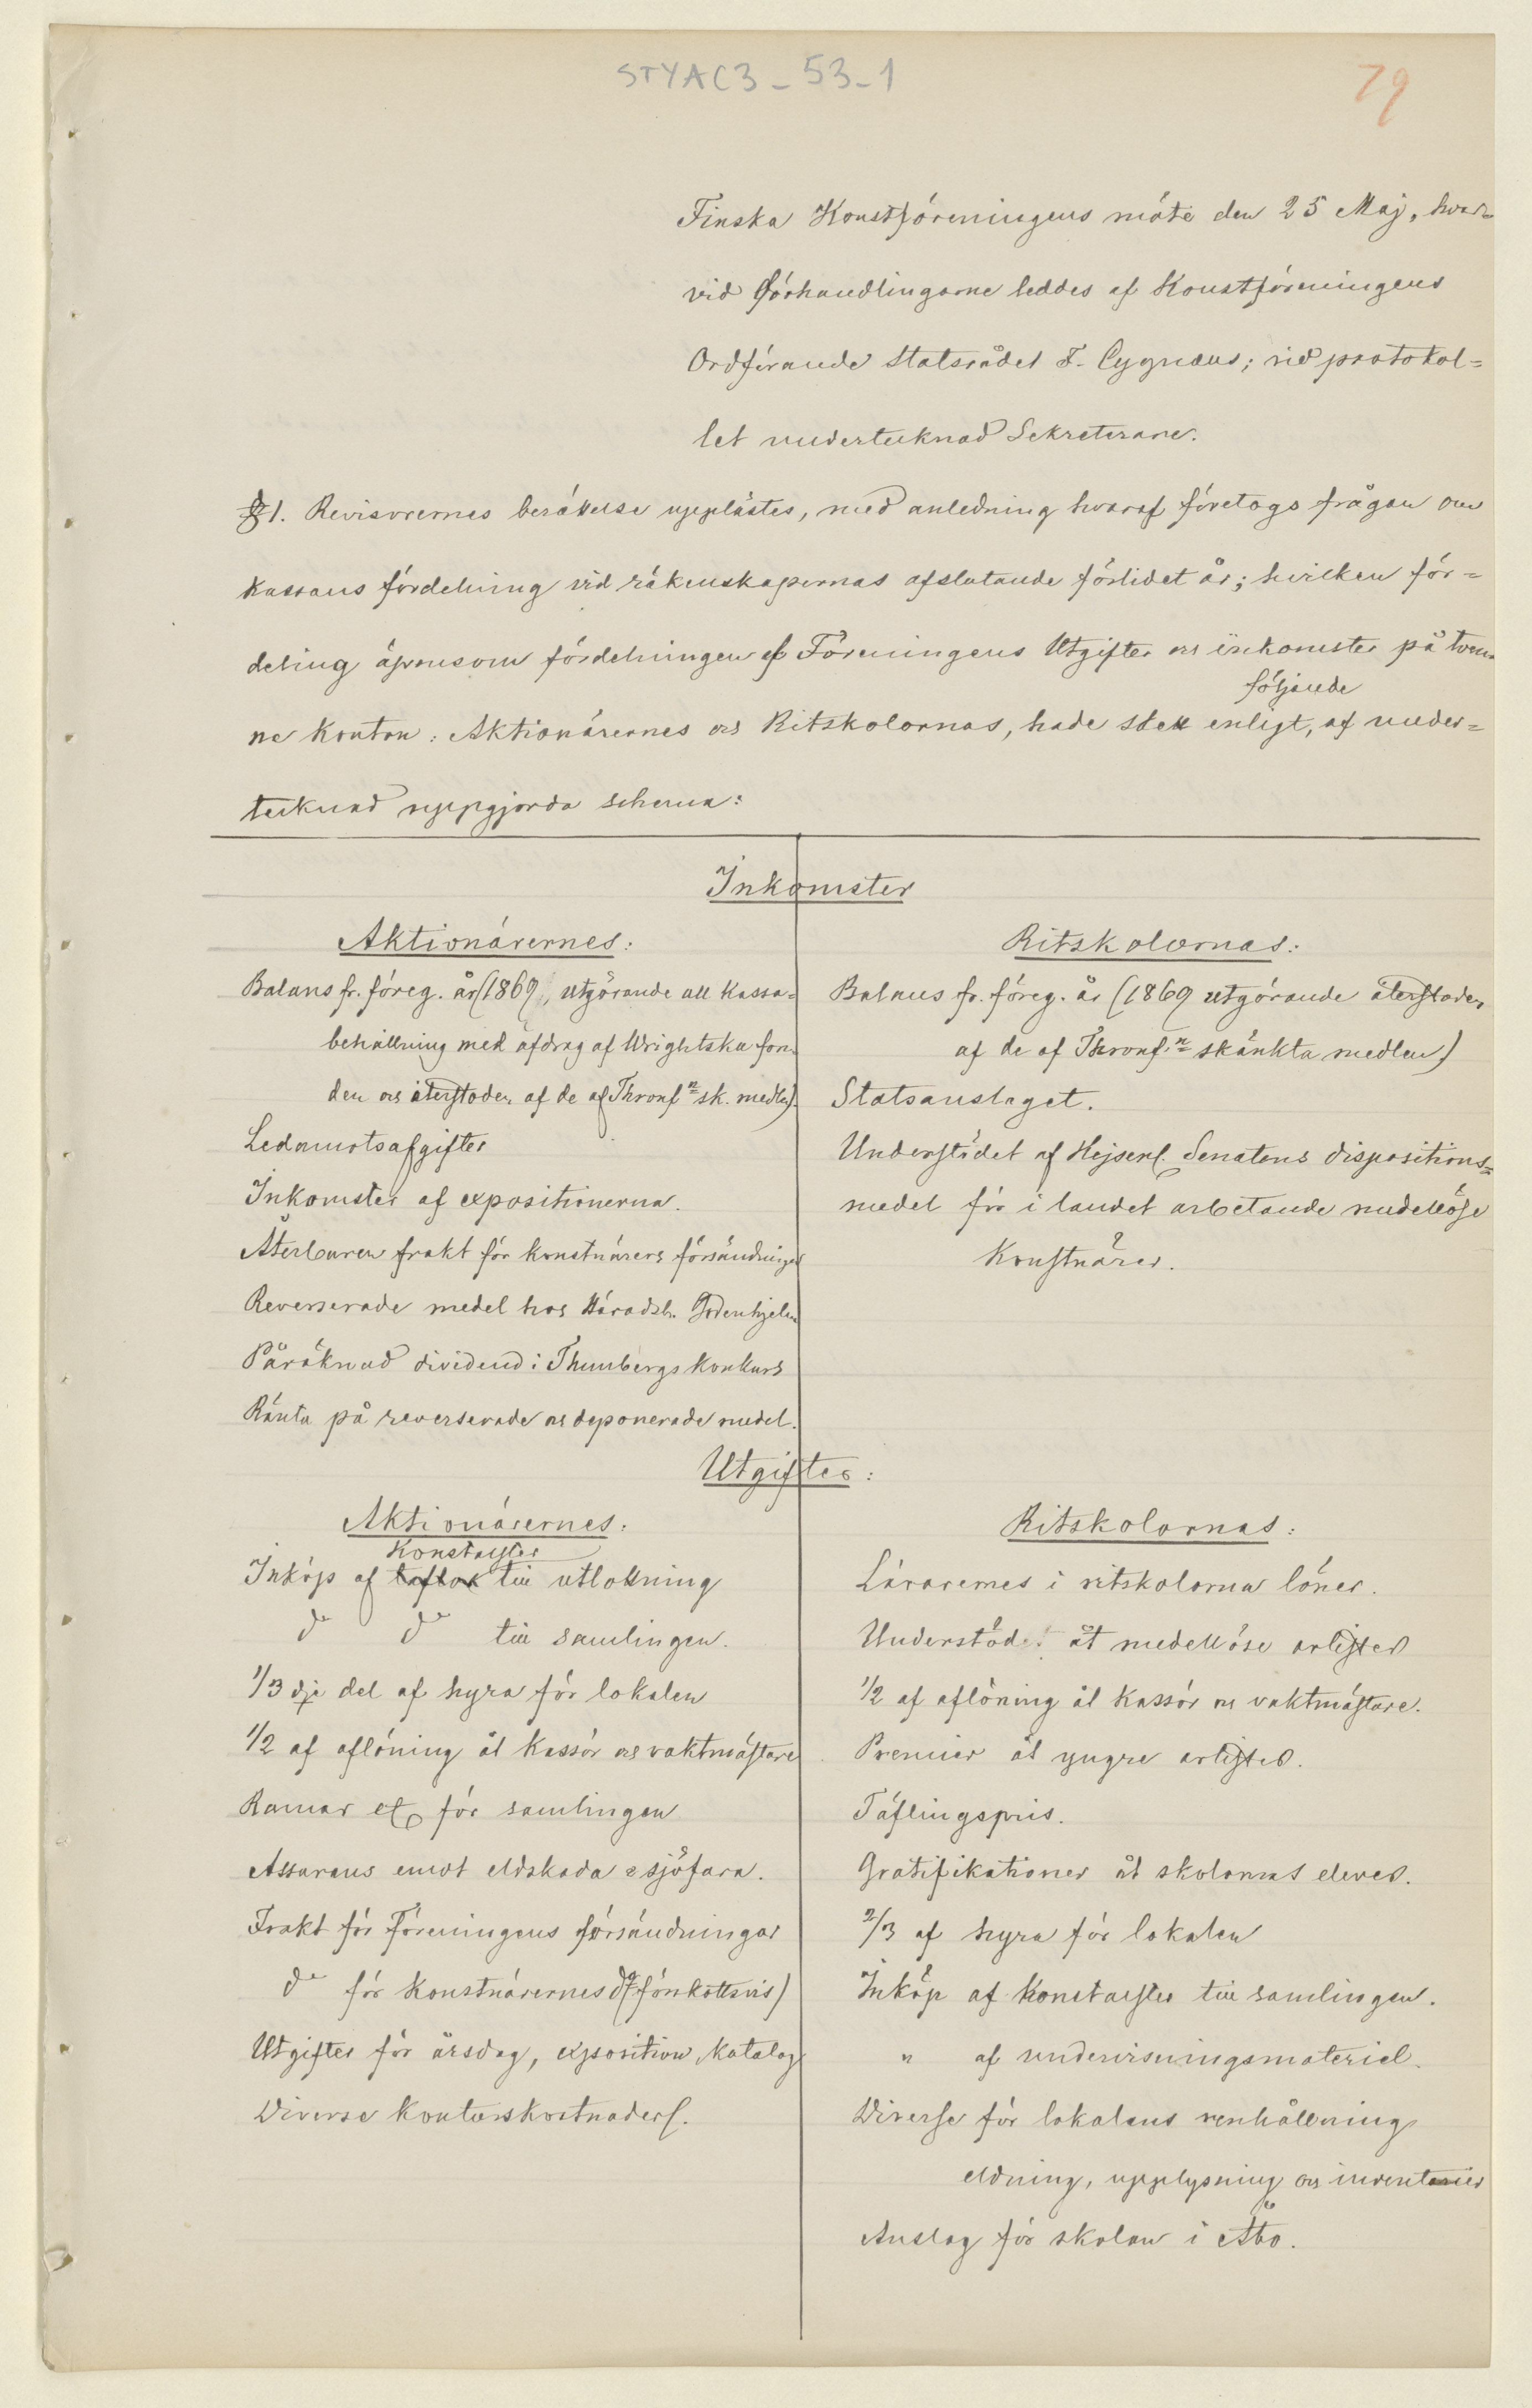 STYAC3_53_1
79
Finska Konstföreningens möte den 25 Maj, hvar-
vid förhandlingarne leddes af Konstföreningens
Ordförande Statsrådet F. Cygnæus; vid protokol=
let undertecknad Sekreterare.
§1. Revisorernes berättelse upplästes, med anledning hvaraf företogs frågan om
kassans fördelning vid räkenskapernas afslutande förlidet år; hvilken för=
delning äfvensom fördelningen af Föreningens Utgifter och inkomster på tven-
följande
ne konton: Aktionärernes och Ritskolornas, hade skett enligt, af under=
tecknad uppgjorda schema:
Inkomster
Aktionärernes:
Balans fr. föreg. år (1869), utgörande all kassa=
behållning med afdrag af Wrightska fon-
den och återstoden af de af Thronf.n sk. medlen)
Ledamotsafgifter
Inkomster af expositionerna.
Återburen frakt för konstnärers försändningar
Reverserade medel hos Häradsh. Godenhjelm
Påräknad dividend i Thunbergs konkurs
Ränta på reverserade och deponerade medel.
Ritskolornas:
Balans fr. föreg. år (1869 utgörande återstoden
af de af Thronf.n skänkta medlen)
Statsanslaget.
Understödet af Kejserl. Senatens dispositions=
medel för i landet arbetande medellöse
Konstnärer.
Utgifter:
Aktionärernes:
Konstalster
Inköp af taflor till utlottning
do do till samlingen.
1/3 dje del af hyra för lokalen
1/2 af aflöning åt kassör och vaktmästare
Ramar etc för samlingen
Assurans emot eldskada o sjöfara.
Frakt för Föreningens försändningar
do för Konstnärernes do (förskottsvis)
Utgifter för årsdag, exposition, katalog
Diverse kontorskostnader.
Ritskolornas:
Lärarernes i ritskolorna löner.
Understödet åt medellöse artister
1/2 af aflöning åt kassör och vaktmästare.
Premier åt yngre artister.
Täflingspris.
Gratifikationer åt skolornas elever.
2/3 af hyra för lokalen
Inköp af Konstalster till samlingen.
" af undervisningsmateriel.
Diverse för lokalens renhållning
eldning, upplysning och inventarier
Anslag för skolan i Åbo.